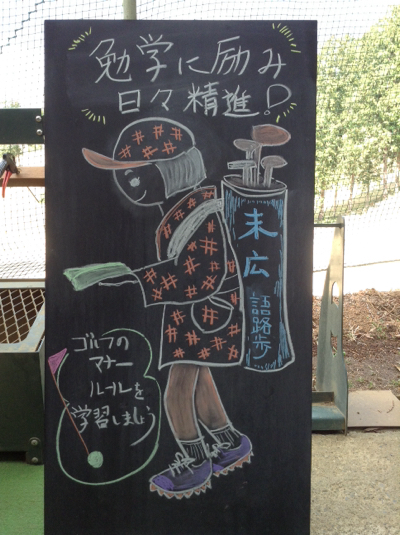 勉学に励み
日々精進!
末広
語路歩
ゴルフの
マナー
ルールを
学習しましょう